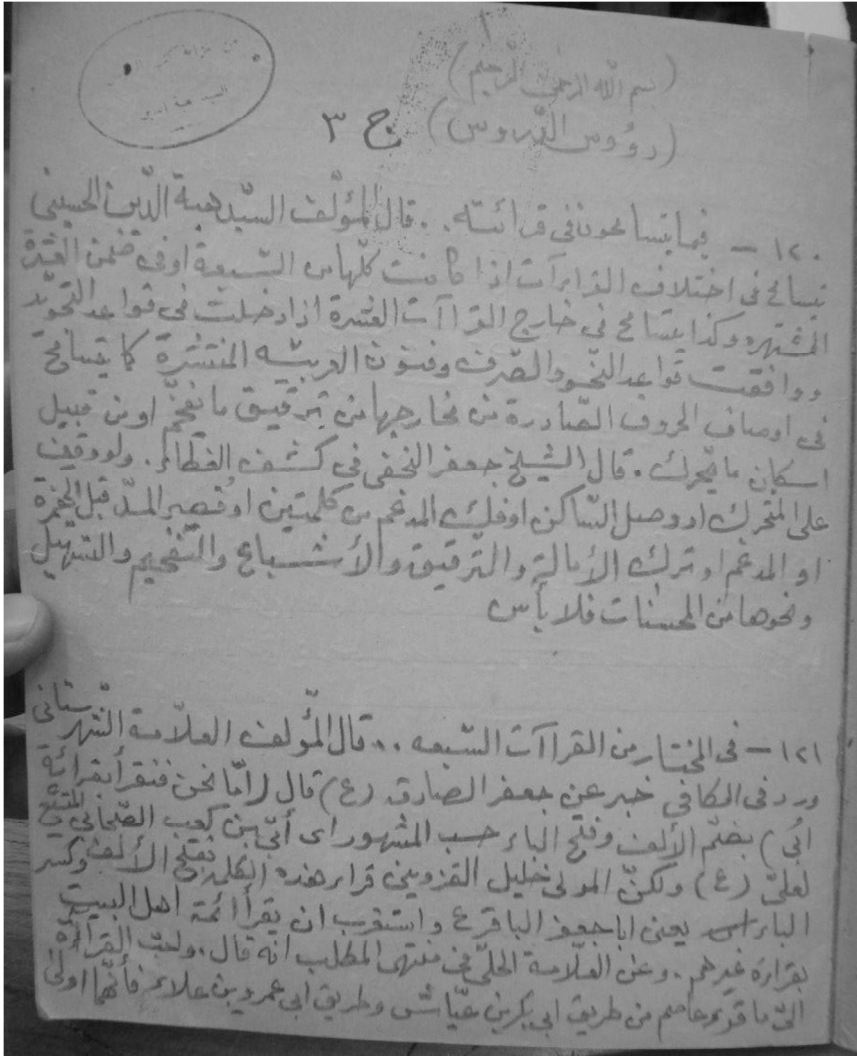 (بسم الله الرحمن الرحيم)
(رؤوس الدروس) ج ٣
١٢٠ - فيما يتسامحون في قرائته . . قال المؤلف السيد هبة الدين الحسيني
يتسامح في اختلاف القراءآت اذا كانت كلها من السبعة او في ضمن العشرة
المشتهره وكذا يتسامح في خارج القراآت العشرة اذا دخلت في قواعد التجويد
ووافقت قواعد النحو والصرف وفنون العربيه المنتشرة كما يتسامح
في اوصاف الحروف الصادرة من مخارجها من ترقيق ما يفخم او من قبيل
اسكان ما يحرك . قال الشيخ جعفر النجفي في كشف الغطاء . ولو وقف
على المتحرك او وصل الساكن او فك المدغم من كلمتين او قصر المد قبل الهمزة
او المدغم او ترك الأمالة والترقيق والأشباع والتفخيم والتسهيل
ونحوها من المحسنات فلا بأس
١٢١ - في المختار من القراآت السبعه . . قال المؤلف العلامة الشهرستاني
ورد في الكافي خبر عن جعفر الصادق (ع) قال (امّا نحن فنقرأ بقرائة
اُبي) بضم الألف وفتح الباء حسب المشهور اى أبي بن كعب الصحابي المتشيع
لعلي (ع) ولكن المولى خليل القزويني قراء هذه الكلمة بفتح الألف وكسر
الباء يعنى ابا جعفر الباقر ع واستغرب ان يقرأ ائمة اهل البيت
بقراءة غيرهم . وعن العلامة الحلي في منتهى المطلب انه قال . واحب القراءة
اليّ ما قرء عاصم من طريق ابي بكر بن عياش وطريق ابي عمرو بن علاء فأنها اولى